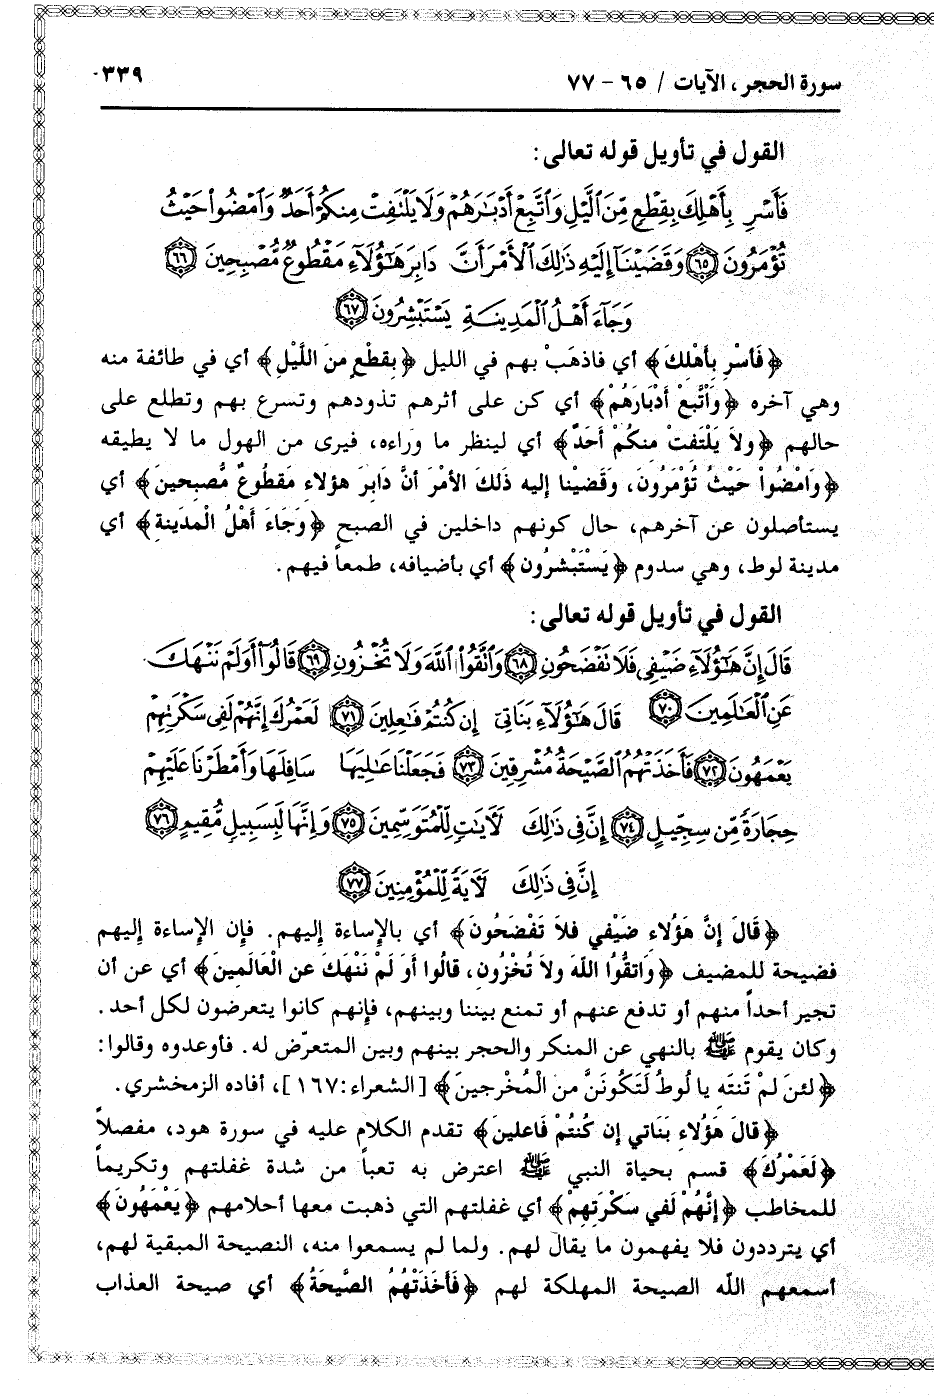 سورة الحجر، الآيات / ٦٥ - ٧٧
٣٣٩
القول في تأويل قوله تعالى:
فَأَسْرِ بِأَهْلِكَ بِقِطْعٍ مِّنَ ٱلَّيْلِ وَٱتَّبِعْ أَدْبَٰرَهُمْ وَلَا يَلْتَفِتْ مِنكُمْ أَحَدٌ وَٱمْضُوا۟ حَيْثُ
تُؤْمَرُونَ ﴿٦٥﴾ وَقَضَيْنَآ إِلَيْهِ ذَٰلِكَ ٱلْأَمْرَ أَنَّ دَابِرَ هَٰٓؤُلَآءِ مَقْطُوعٌ مُّصْبِحِينَ ﴿٦٦﴾
وَجَآءَ أَهْلُ ٱلْمَدِينَةِ يَسْتَبْشِرُونَ ﴿٦٧﴾
﴿فَأَسْرِ بِأَهْلِكَ﴾ أي فاذهَبْ بهم في الليل ﴿بِقِطْعٍ مِنَ اللَّيْلِ﴾ أي في طائفة منه
وهي آخره ﴿وَاتَّبِعْ أَدْبَارَهُمْ﴾ أي كن على أثرهم تذودهم وتسرع بهم وتطلع على
حالهم ﴿ولاَ يَلْتَفِتْ مِنكُمْ أَحَدٌ﴾ أي لينظر ما وراءه، فيرى من الهول ما لا يطيقه
﴿وَامْضُواْ حَيْثُ تُؤْمَرُونَ، وَقَضَيْنا إليه ذَلكَ الأمْرَ أنَّ دَابِرَ هؤلاءِ مَقطُوعٌ مُّصبِحينَ﴾ أي
يستأصلون عن آخرهم، حال كونهم داخلين في الصبح ﴿وَجَاءَ أَهْلُ الْمَدينة﴾ أي
مدينة لوط، وهي سدوم ﴿يَسْتَبْشرُون﴾ أي بأضيافه، طمعاً فيهم.
القول في تأويل قوله تعالى:
قَالَ إِنَّ هَٰٓؤُلَآءِ ضَيْفِى فَلَا تَفْضَحُونِ ﴿٦٨﴾ وَٱتَّقُوا۟ ٱللَّهَ وَلَا تُخْزُونِ ﴿٦٩﴾ قَالُوٓا۟ أَوَلَمْ نَنْهَكَ
عَنِ ٱلْعَٰلَمِينَ ﴿٧٠﴾ قَالَ هَٰٓؤُلَآءِ بَنَاتِىٓ إِن كُنتُمْ فَٰعِلِينَ ﴿٧١﴾ لَعَمْرُكَ إِنَّهُمْ لَفِى سَكْرَتِهِمْ
يَعْمَهُونَ ﴿٧٢﴾ فَأَخَذَتْهُمُ ٱلصَّيْحَةُ مُشْرِقِينَ ﴿٧٣﴾ فَجَعَلْنَا عَٰلِيَهَا سَافِلَهَا وَأَمْطَرْنَا عَلَيْهِمْ
حِجَارَةً مِّن سِجِّيلٍ ﴿٧٤﴾ إِنَّ فِى ذَٰلِكَ لَآيَٰتٍ لِّلْمُتَوَسِّمِينَ ﴿٧٥﴾ وَإِنَّهَا لَبِسَبِيلٍ مُّقِيمٍ ﴿٧٦﴾
إِنَّ فِى ذَٰلِكَ لَآيَةً لِّلْمُؤْمِنِينَ ﴿٧٧﴾
﴿قَالَ إِنَّ هَؤُلاء ضَيْفي فلاَ تَفْضَحُونَ﴾ أي بالإساءة إليهم. فإن الإساءة إليهم
فضيحة للمضيف ﴿وَاتقُّوُا اللّهَ ولاَ تُخْزُون، قالُوا أوَ لَمْ نَنْهَكَ عن العَالَمينَ﴾ أي عن أن
تجير أحداً منهم أو تدفع عنهم أو تمنع بيننا وبينهم، فإنهم كانوا يتعرضون لكل أحد.
وكان يقوم ﷺ بالنهي عن المنكر والحجر بينهم وبين المتعرّض له. فأوعدوه وقالوا:
﴿لئن لمْ تَنتَه يا لُوطُ لَتَكُونَنَّ من الْمُخْرجينَ﴾ [الشعراء:١٦٧]، أفاده الزمخشري.
﴿قالَ هَؤُلاء بَنَاتي إن كُنتُمْ فَاعلينَ﴾ تقدم الكلام عليه في سورة هود، مفصلاً
﴿لَعَمْرُكَ﴾ قسم بحياة النبي ﷺ اعترض به تعباً من شدة غفلتهم وتكريماً
للمخاطب ﴿إنَّهُمْ لَفي سَكْرَتهمْ﴾ أي غفلتهم التي ذهبت معها أحلامهم ﴿يَعْمَهُونَ﴾
أي يترددون فلا يفهمون ما يقال لهم. ولما لم يسمعوا منه، النصيحة المبقية لهم،
أسمعهم اللّه الصيحة المهلكة لهم ﴿فَأَخَذَتْهُمُ الصَّيحَةُ﴾ أي صيحة العذاب